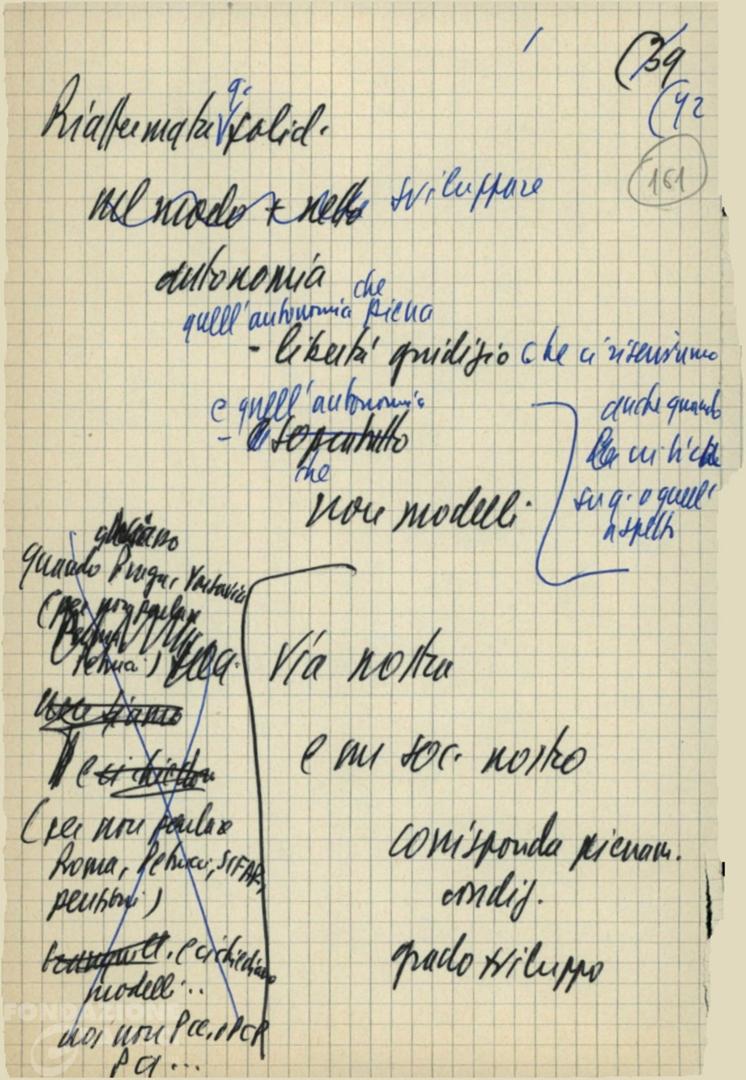 (39
(42
161
Riaffermata q. solid.
nel modo + netto sviluppare
autonomia
che
quell'autonomia piena
- libertà giudizio che ci riserviamo
e quell'autonomia
- soprattutto
che
non modelli
anche quando
critiche
su q. o quell'
aspetto
quando Praga, Varsavia
(per non parlare
Petrucci)
non siamo
e ci chiedono
(per non parlare
Roma, Petrucci, SIFAR,
pensioni)
e ci chiediamo
modelli...
noi non Pcc, o PCP
PCI...
Via nostra
e un soc. nostro
corrisponda pienam.
condiz.
grado sviluppo
FONDAZION